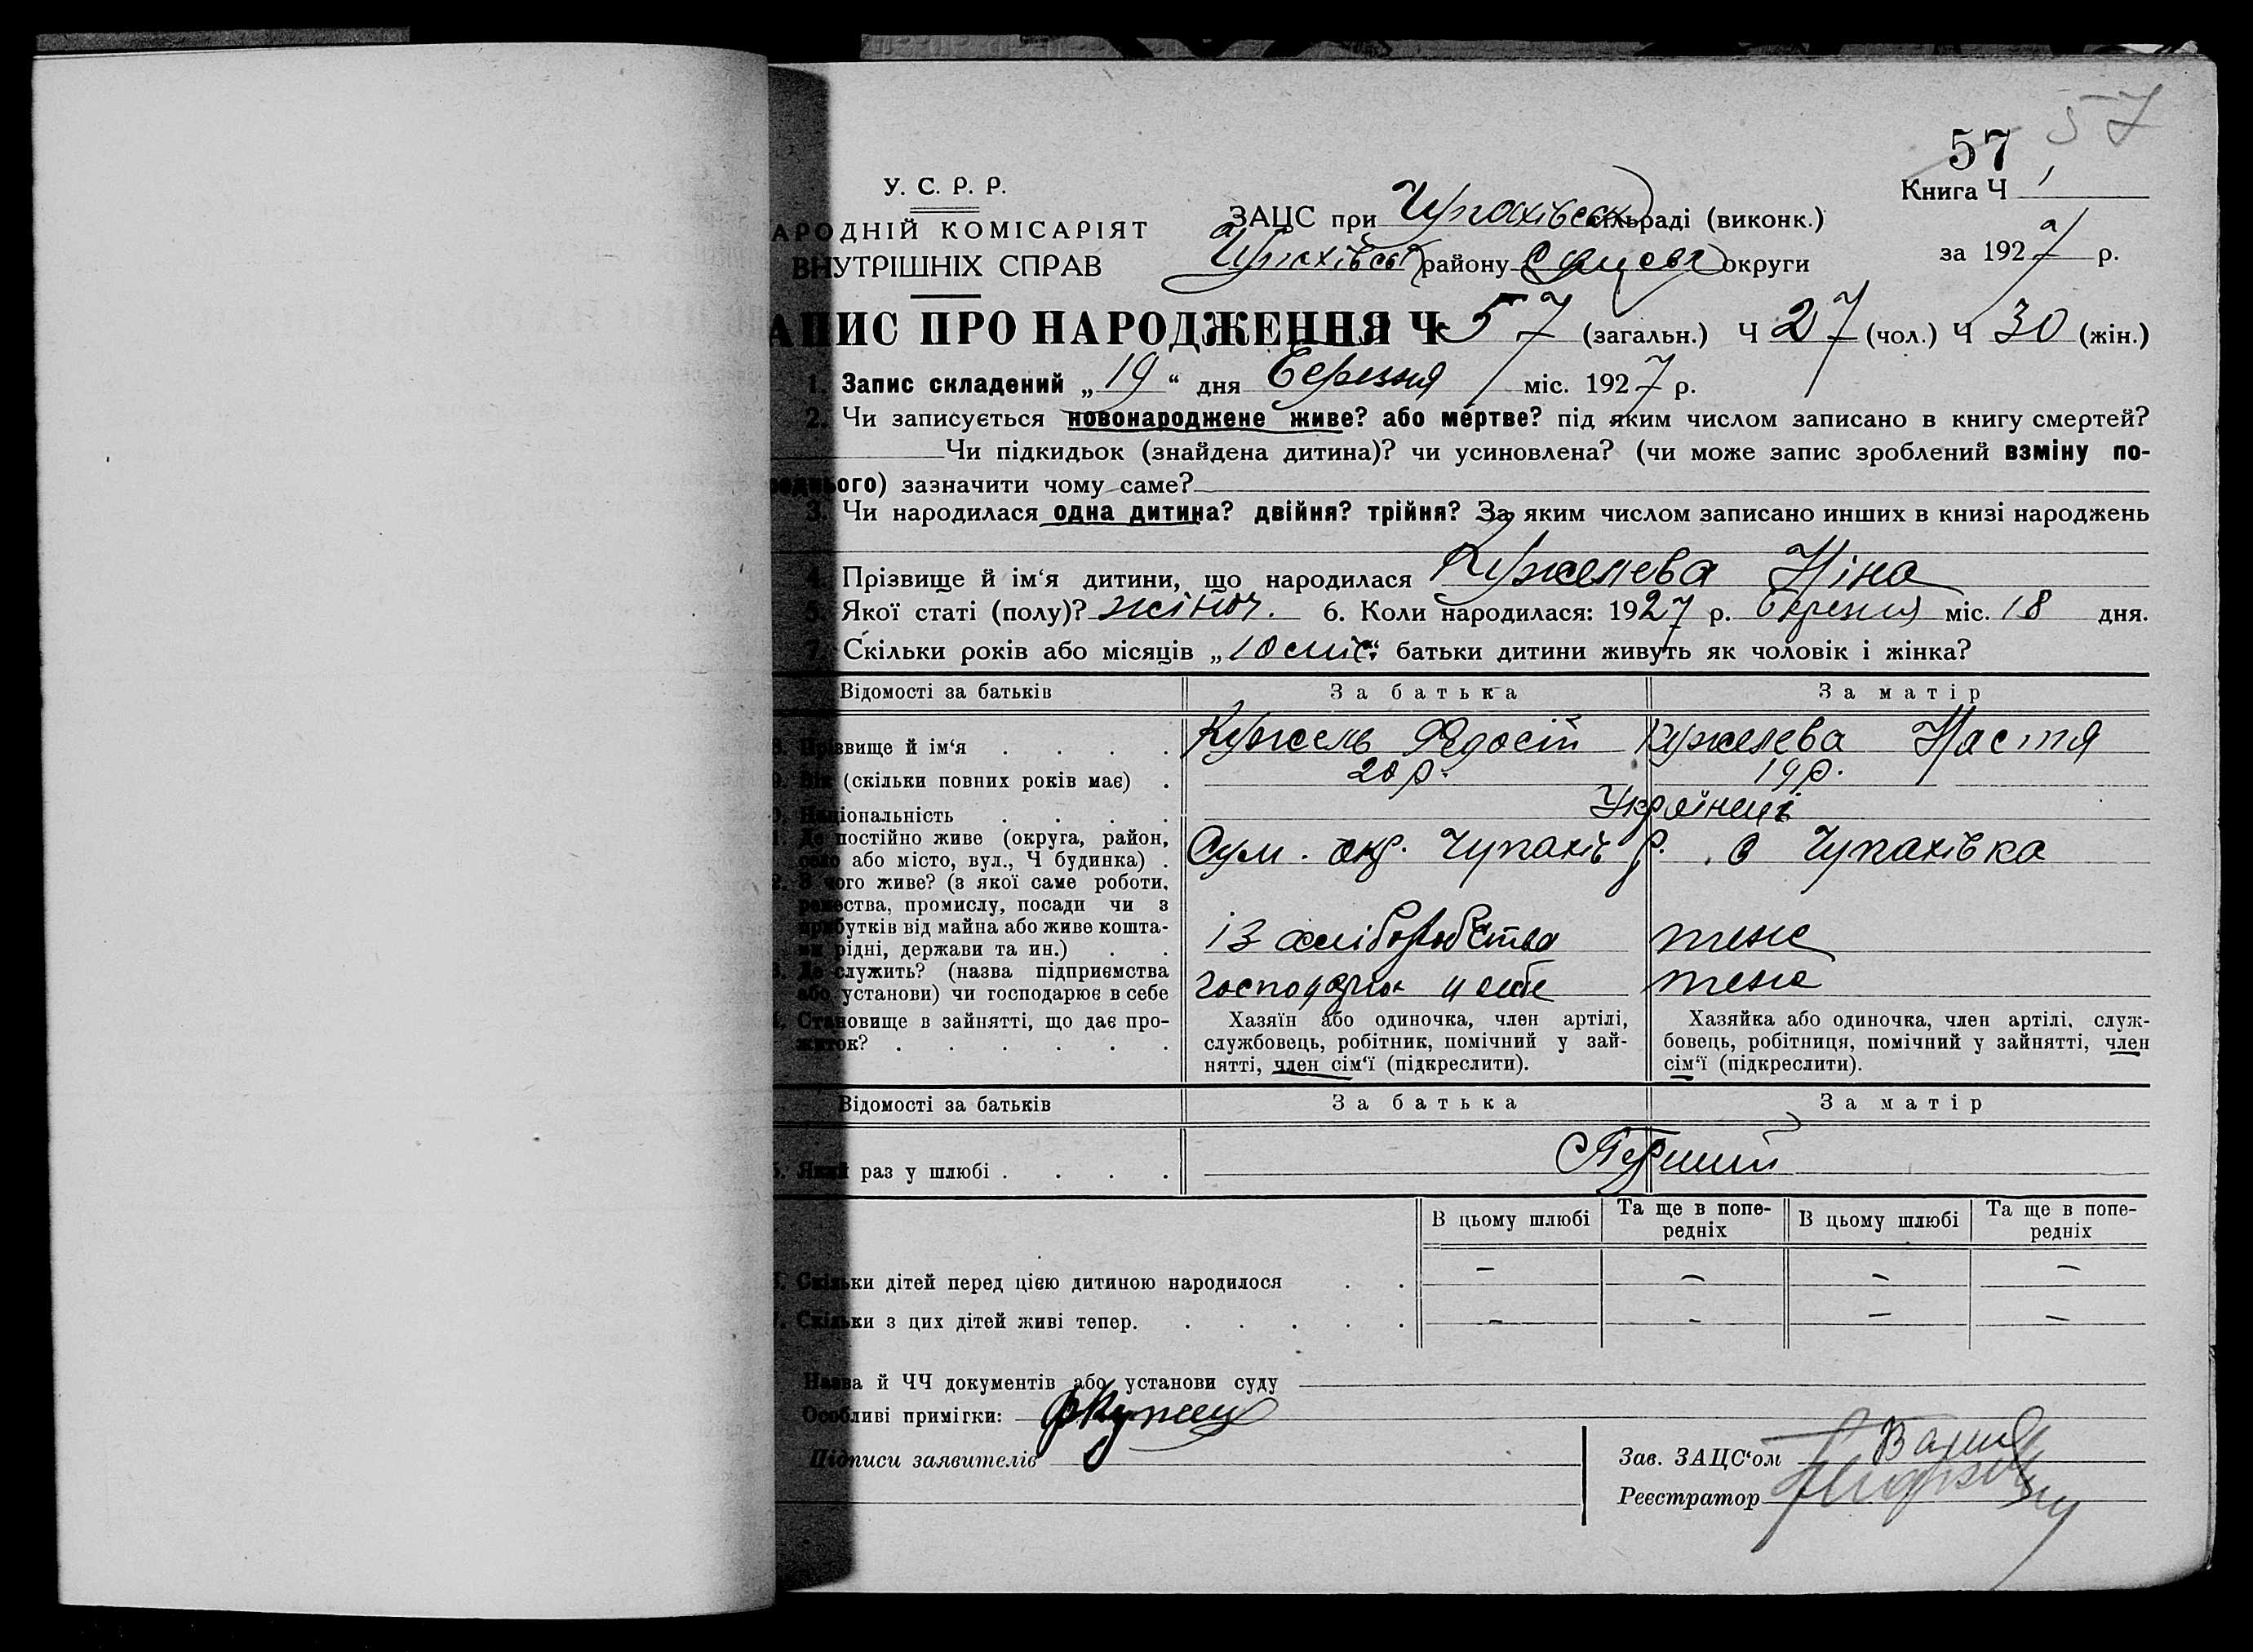 57
57
Книга Ч 1
У. С. Р. Р.
АРОДНІЙ КОМІСАРІЯТ
ВНУТРІШНІХ СПРАВ
ЗАЦС при Чупахівськ сільраді (виконк.)
Чупахівськ району Сумськ округи
за 1927 р.
АПИС ПРО НАРОДЖЕННЯ Ч 57 (загальн.) Ч 27 (чол.) Ч 30 (жін.)
1. Запис складений „ 19 “ дня Березня міс. 1927 р.
2. Чи записується новонароджене живе? або мертве? під яким числом записано в книгу смертей?
Чи підкидьок (знайдена дитина)? чи усиновлена? (чи може запис зроблений взміну по-
реднього) зазначити чому саме?
3. Чи народилася одна дитина? двійня? трійня? За яким числом записано инших в книзі народжень
4. Прізвище й ім‘я дитини, що народилася Кужелева Ніна
5. Якої статі (полу)? жіноч. 6. Коли народилася: 1927 р. березня міс. 18 дня.
7. Скільки років або місяців „10 міс.“ батьки дитини живуть як чоловік і жінка?
Відомості за батьків За батька За матір
8. Прізвище й ім‘я . . . . Кужель Федосій Кужелева Настя
9. Вік (скільки повних років має) . 20 р. 19 р.
Національність . . . . Українці
Де постійно живе (округа, район,
село або місто, вул., Ч будинка) . Сум. окр. Чупахів р. с Чупахівка
2. З чого живе? (з якої саме роботи,
ремества, промислу, посади чи з
прибутків від майна або живе кошта-
ми рідні, держави та ин.) . . із хліборобства теж
Де служить? (назва підприємства
або установи) чи господарює в себе господарює у себе теж
Становище в зайнятті, що дає про-
житок? . . . . . .
Хазяїн або одиночка, член артілі,
службовець, робітник, помічний у зай-
нятті, член сім‘ї (підкреслити).
Хазяйка або одиночка, член артілі, служ-
бовець, робітниця, помічний у зайнятті, член
сім‘ї (підкреслити).
Відомості за батьків За батька За матір
5. Який раз у шлюбі . . . . Перший
В цьому шлюбі Та ще в попе-
редніх В цьому шлюбі Та ще в попе-
редніх
Скільки дітей перед цією дитиною народилося . . – – – –
Скільки з цих дітей живі тепер. . . . . . – – – –
Назва й ЧЧ документів або установи суду
Особливі примітки:
Підписи заявителів
Зав. ЗАЦС‘ом
Реєстратор